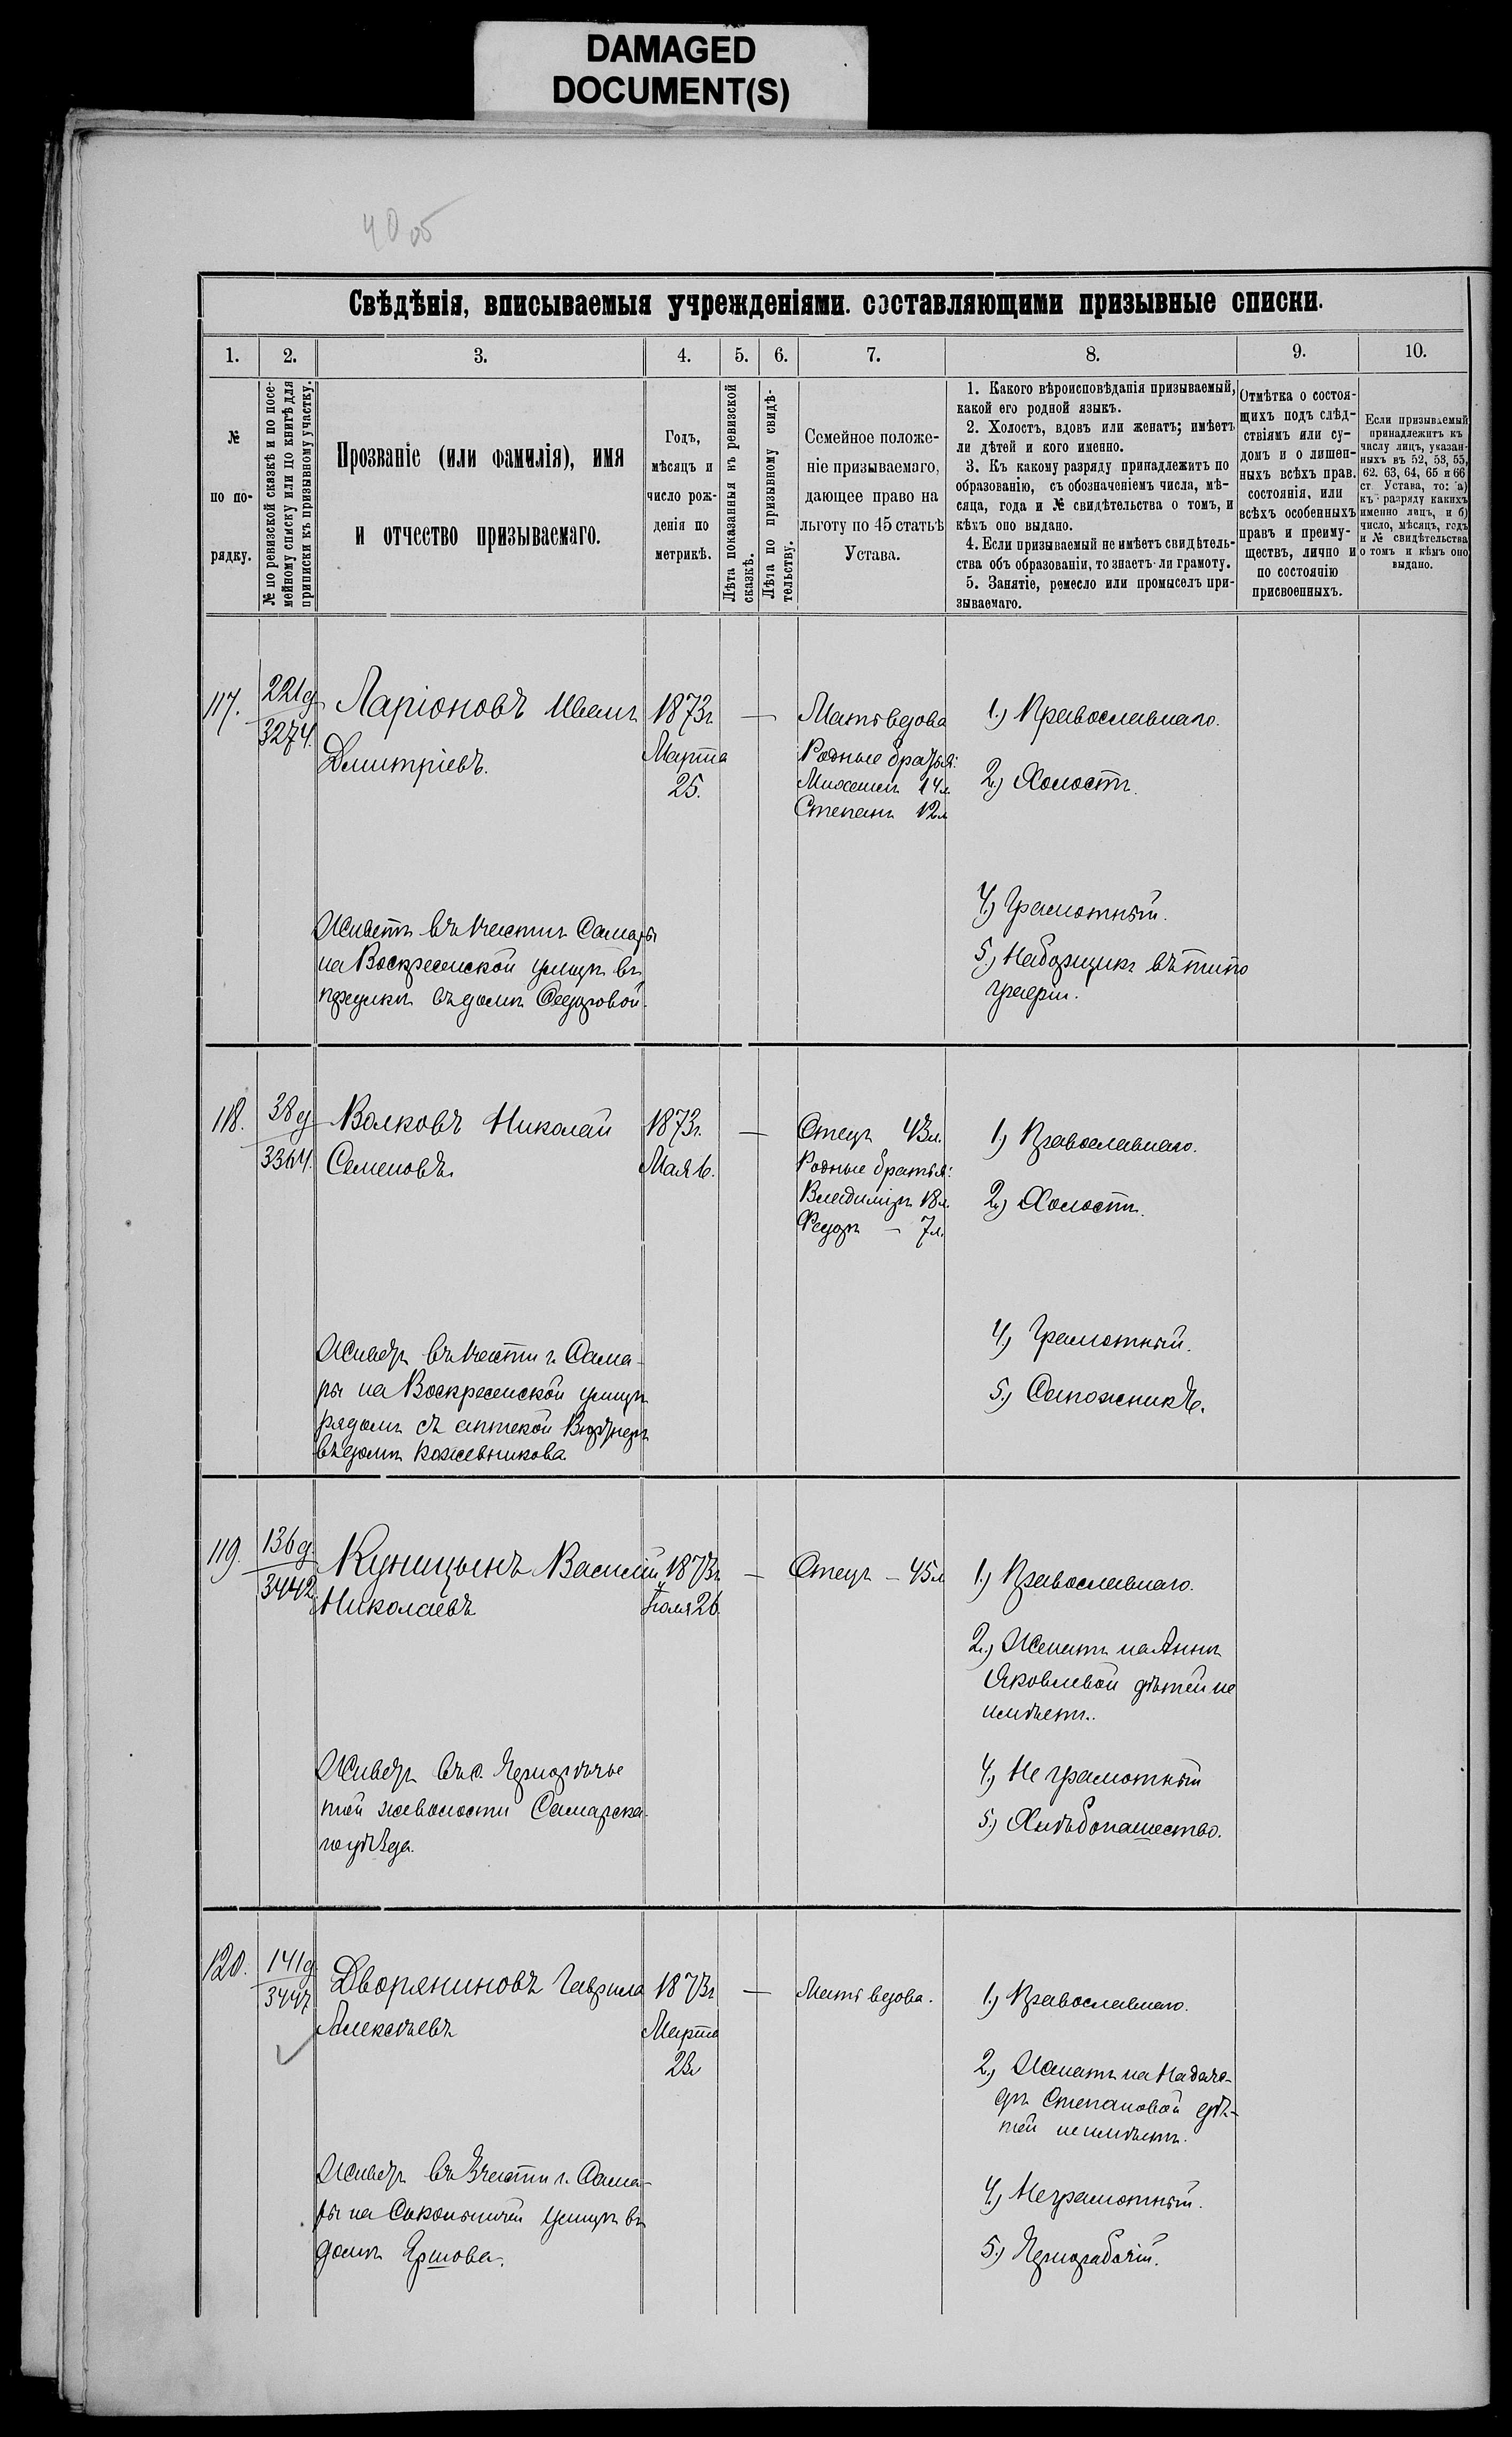 DAMAGED
DOCUMENT(S)
40 об
Свѣдѣнія, вписываемыя учрежденіями. составляющими призывные списки.
1. 2. 3. 4. 5. 6. 7. 8. 9. 10.
№
по по-
рядку.
№ по ревизской сказкѣ и по посе-
мейному списку или по книгѣ для
приписки къ призывному участку.
Прозваніе (или фамилія), имя
и отчество призываемаго.
Годъ,
мѣсяцъ и
число рож-
денія по
метрикѣ.
Лѣта показанныя въ ревизской
сказкѣ.
Лѣта по призывному свидѣ-
тельству.
Семейное положе-
ніе призываемаго,
дающее право на
льготу по 45 статьѣ
Устава.
1. Какого вѣроисповѣданія призываемый,
какой его родной языкъ.
2. Холостъ, вдовъ или женатъ; имѣетъ
ли дѣтей и кого именно.
3. Къ какому разряду принадлежитъ по
образованію, съ обозначеніемъ числа, мѣ-
сяца, года и № свидѣтельства о томъ, и
кѣмъ оно выдано.
4. Если призываемый не имѣетъ свидѣтель-
ства объ образованіи, то знаетъ-ли грамоту.
5. Занятіе, ремесло или промыселъ при-
зываемаго.
Отмѣтка о состоя-
щихъ подъ слѣд-
ствіямъ или су-
домъ и о лишен-
ныхъ всѣхъ прав.
состоянія, или
всѣхъ особенныхъ
правъ и преиму-
ществъ, лично и
по состоянію
присвоенныхъ.
Если призываемый
принадлежитъ къ
числу лицъ, указан-
ныхъ въ 52, 53, 55,
62. 63, 64, 65 и 66
ст. Устава, то: а)
къ разряду какихъ
именно лицъ, и б)
число, мѣсяцъ, годъ
и № свидѣтельства
о томъ и кѣмъ оно
выдано.
117.
221д
3274.
Ларіоновъ Иванъ
Дмитріевъ.
1873г
Марта
25.
—
Мать вдова
Родные братья:
Михаилъ 14л
Степанъ 12л
1.) Православнаго.
2.) Холостъ.
4.) Грамотный.
5.) Наборщикъ въ типо
графіи.
Живетъ въ 1 части Самары
на Воскресенской улицѣ въ
въ домѣ Федоровой.
118.
38д
3364.
Волковъ Николай
Семеновъ.
1873г.
Мая 6.
—
Отецъ 43л.
Родные братья:
Владиміръ 18л.
Федоръ — 7л.
1.) Православнаго.
2.) Холостъ.
4.) Грамотный.
5.) Сапожникъ.
Живетъ въ 1 части г. Сама-
ры на Воскресенской улицѣ
рядомъ съ аптекой
въ домѣ Кожевникова
119.
136д.
3442
Куницынъ Василій
Николаевъ
1873г
Іюля 26.
—
Отецъ — 45л
1.) Православнаго.
2.) Женатъ на Аннѣ
Яковлевой дѣтей не
имѣетъ.
4.) Не грамотный
5.) Хлѣбопашество.
Живетъ въ с. Чернорѣчье
той же волости Самарска-
го уѣзда.
120.
141д
3447
Дворяниновъ Гаврила
Алексѣевъ
1873г
Марта
23
—
Мать вдова.
1.) Православнаго.
2.) Женатъ на Надеж-
дѣ Степановой дѣ-
тей не имѣетъ.
4.) Неграмотный.
5.) Чернорабочій.
Живетъ въ 3 части г. Сама-
ры на Сокольничей улицѣ въ
домѣ Ершова.